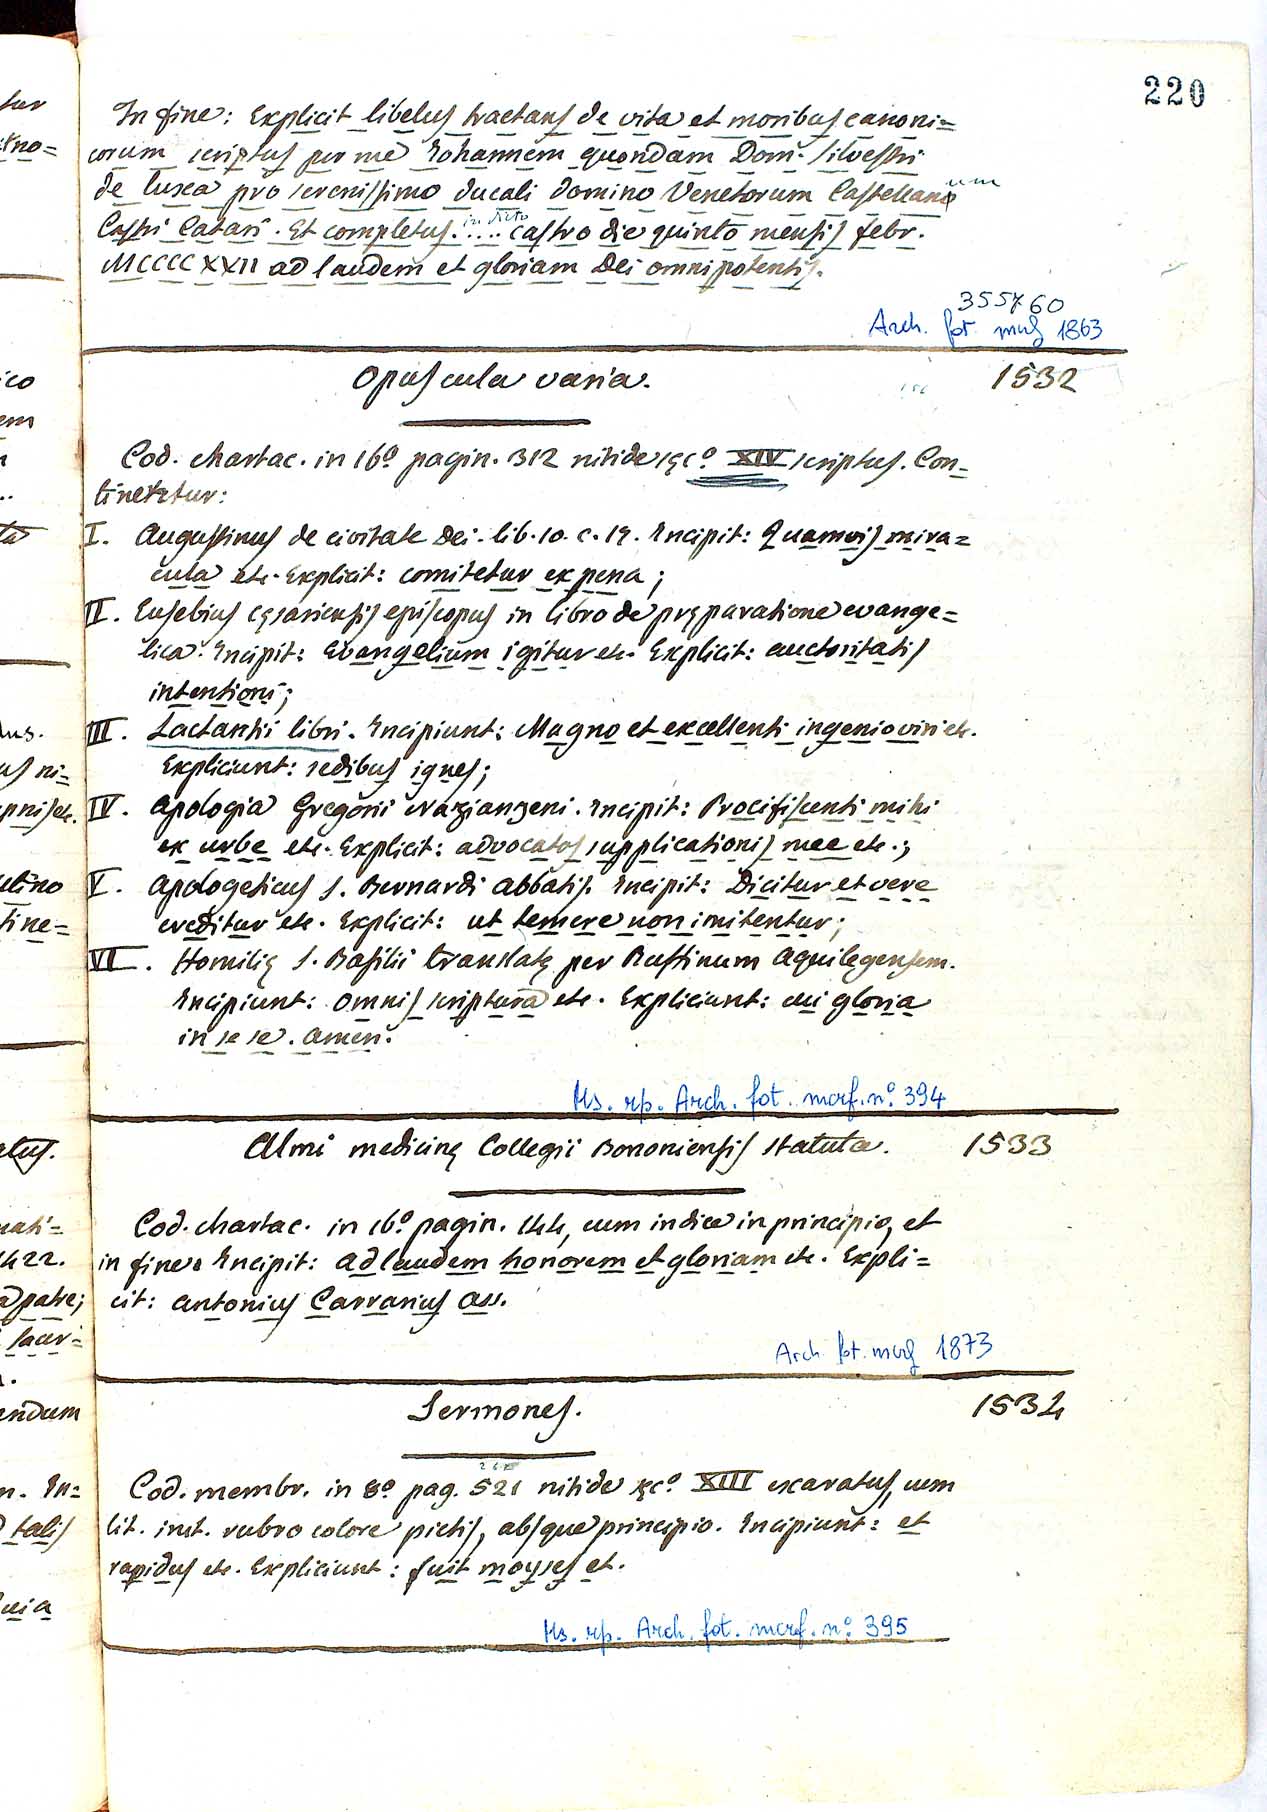 220
In fine: Explicit libelus tractans de vita et moribus canoni=
corum scriptus per me Iohannem quondam Dom. Silvestri
de Luxea pro serenissimo ducali domino Venetorum Castellanum
Castri Catari. Et completus .... in dicto castro die quinto mensis febr.
MCCCCXXII ad laudem et gloriam Dei omnipotentis.
355760
Arch. fot. mcrf 1863
Opuscula varia. 1532
Cod. chartac. in 16º pagin. 312 nitide sęcº XIV scriptus. Con=
tinetur:
I. Augustinus de civitate Dei. lib. 10. c. 19. Incipit: Quamvis mira=
cula etc. Explicit: comitetur ex pena;
II. Eusebius cęsariensis episcopus in libro de pręparatione evange=
lica. Incipit: Evangelium igitur etc. Explicit: auctoritatis
intentioni;
III. Lactantii libri. Incipiunt: Magno et excellenti ingenio viri etc.
Expliciunt: sedibus ignes;
IV. Apologia Gregorii Nazianzeni. Incipit: Proficiscenti mihi
ex urbe etc. Explicit: advocatos supplicationis mee etc.;
V. Apologeticus S. Bernardi abbatis. Incipit: Dicitur et vere
creditur etc. Explicit: ut temere non imitentur;
VI. Homilię S. Basilii translatę per Ruffinum Aquilęgensem.
Incipiunt: Omnis scriptura etc. Expliciunt: cui gloria
in se se. Amen.
Ms. rp. Arch. fot. mcrf. nº. 394
Almi medicinę Collegii Bononiensis statuta. 1533
Cod. chartac. in 16º pagin. 144, cum indice in principio, et
in fine. Incipit: Ad laudem honorem et gloriam etc. Expli=
cit: Antonius Carrarius ass.
Arch. fot. mcrf 1873
Sermones. 1534
Cod. membr. in 8º pag. 521 nitide sęcº XIII exaratus, cum
lit. init. rubro colore pictis, absque principio. Incipiunt: et
rapidus etc. Expliciunt: fuit moyses et.
Ms. rp. Arch. fot. mcrf. nº. 395